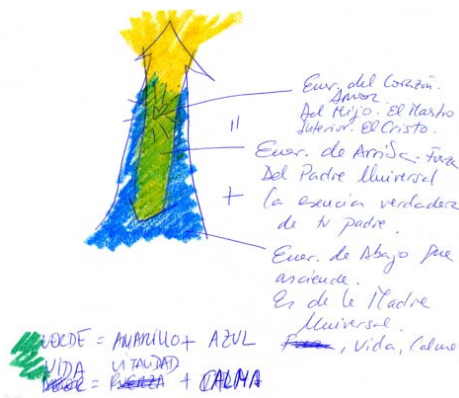 Ener. del Corazón.
Amor
Del Hijo. El Maestro
Interior. El Cristo.
=
Ener. de Arriba. Fuerza
Del Padre Universal
+
la esencia verdadera
de tu padre.
Ener. de Abajo que
asciende.
Es de la Madre
Universal.
Fuerza, Vida, Calma
VERDE = AMARILLO + AZUL
VIDA VITALIDAD
= FUERZA + CALMA